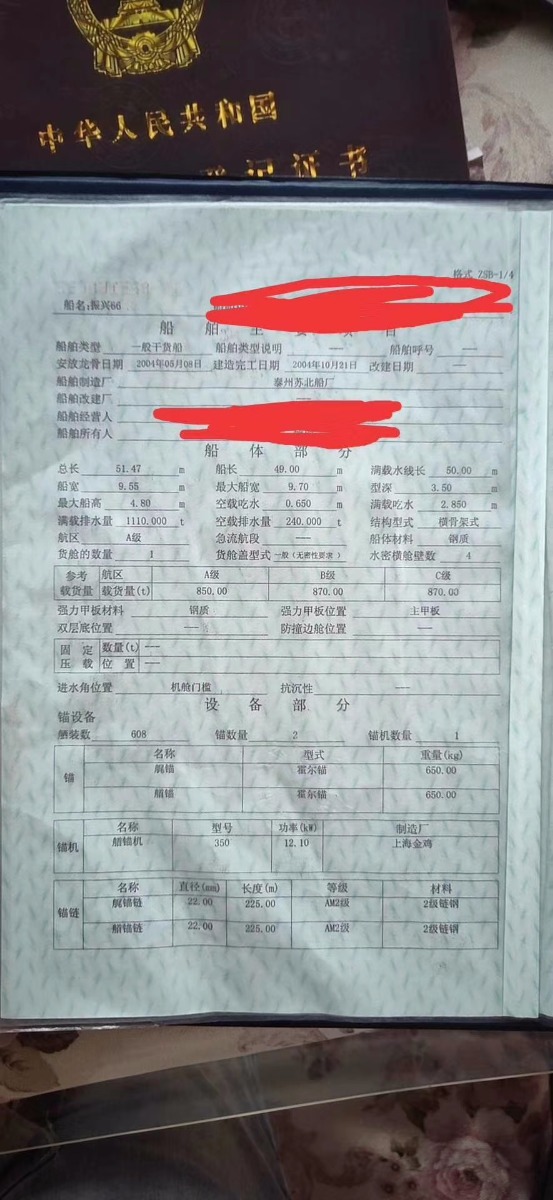 中华人民共和国
登记证书
格式 ZSB-1/4
船名:振兴66
船 舶 主 要 项 目
船舶类型 一般干货船 船舶类型说明 —— 船舶呼号 ——
安放龙骨日期 2004年05月08日 建造完工日期 2004年10月21日 改建日期 ——
船舶制造厂 泰州苏北船厂
船舶改建厂 ——
船舶经营人
船舶所有人
船 体 部 分
总长 51.47 m 船长 49.00 m 满载水线长 50.00 m
船宽 9.55 m 最大船宽 9.70 m 型深 3.50 m
最大船高 4.80 m 空载吃水 0.650 m 满载吃水 2.850 m
满载排水量 1110.000 t 空载排水量 240.000 t 结构型式 横骨架式
航区 A级 急流航段 —— 船体材料 钢质
货舱的数量 1 货舱盖型式 一般（无密性要求） 水密横舱壁数 4
参考 航区 A级 B级 C级
载货量 载货量(t) 850.00 870.00 870.00
强力甲板材料 钢质 强力甲板位置 主甲板
双层底位置 —— 防撞边舱位置 ——
固 定 数量(t) ——
压 载 位 置 ——
进水角位置 机舱门槛 抗沉性 ——
设 备 部 分
锚设备
舾装数 608 锚数量 2 锚机数量 1
锚 名称 型式 重量(kg)
艉锚 霍尔锚 650.00
艏锚 霍尔锚 650.00
锚机 名称 型号 功率(kW) 制造厂
艏锚机 350 12.10 上海金鸡
锚链 名称 直径(mm) 长度(m) 等级 材料
艉锚链 22.00 225.00 AM2级 2级链钢
艏锚链 22.00 225.00 AM2级 2级链钢